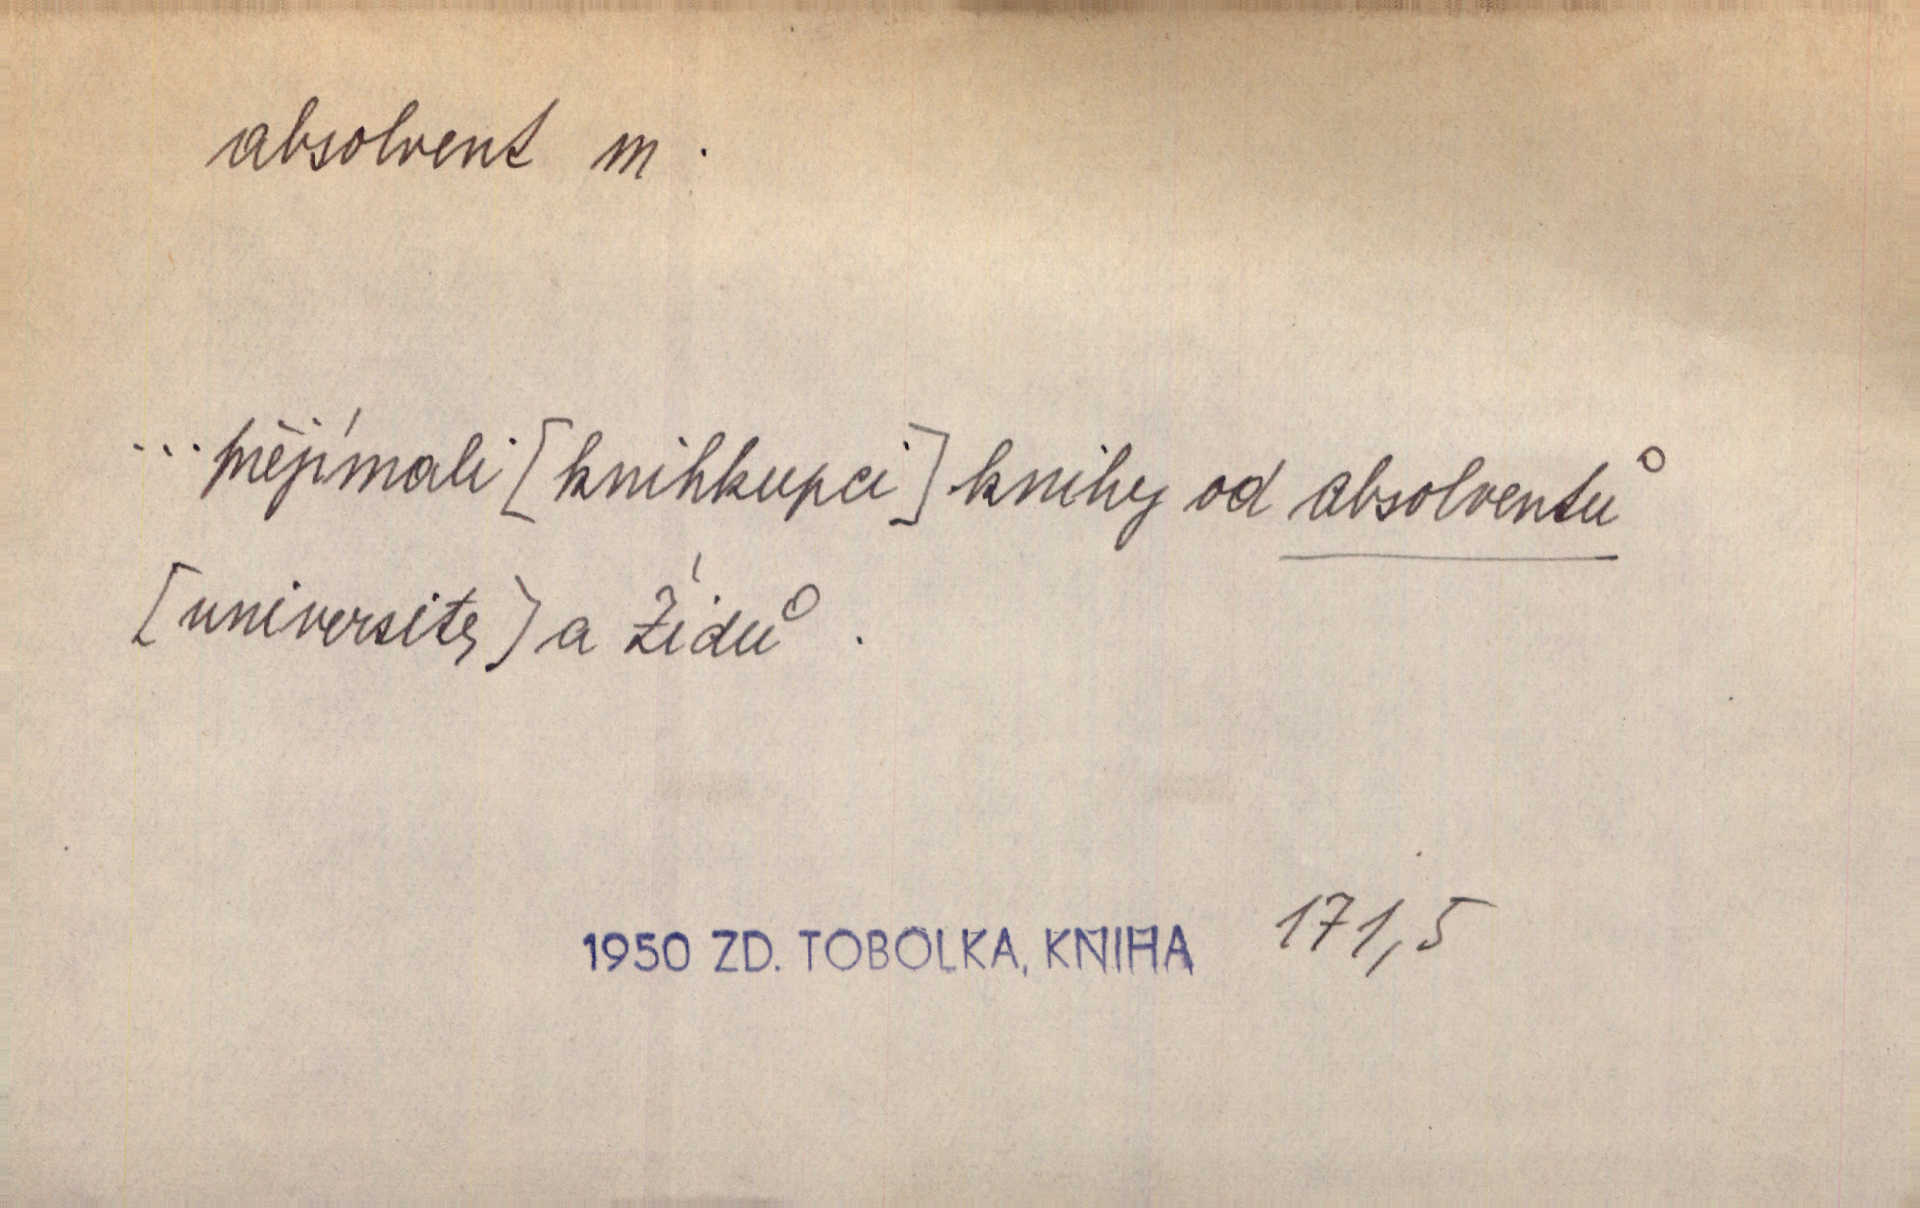 absolvent m.
...přejímali [knihkupci] knihy od absolventů
[university] a Židů.
1950 ZD. TOBOLKA, KNIHA 171,5